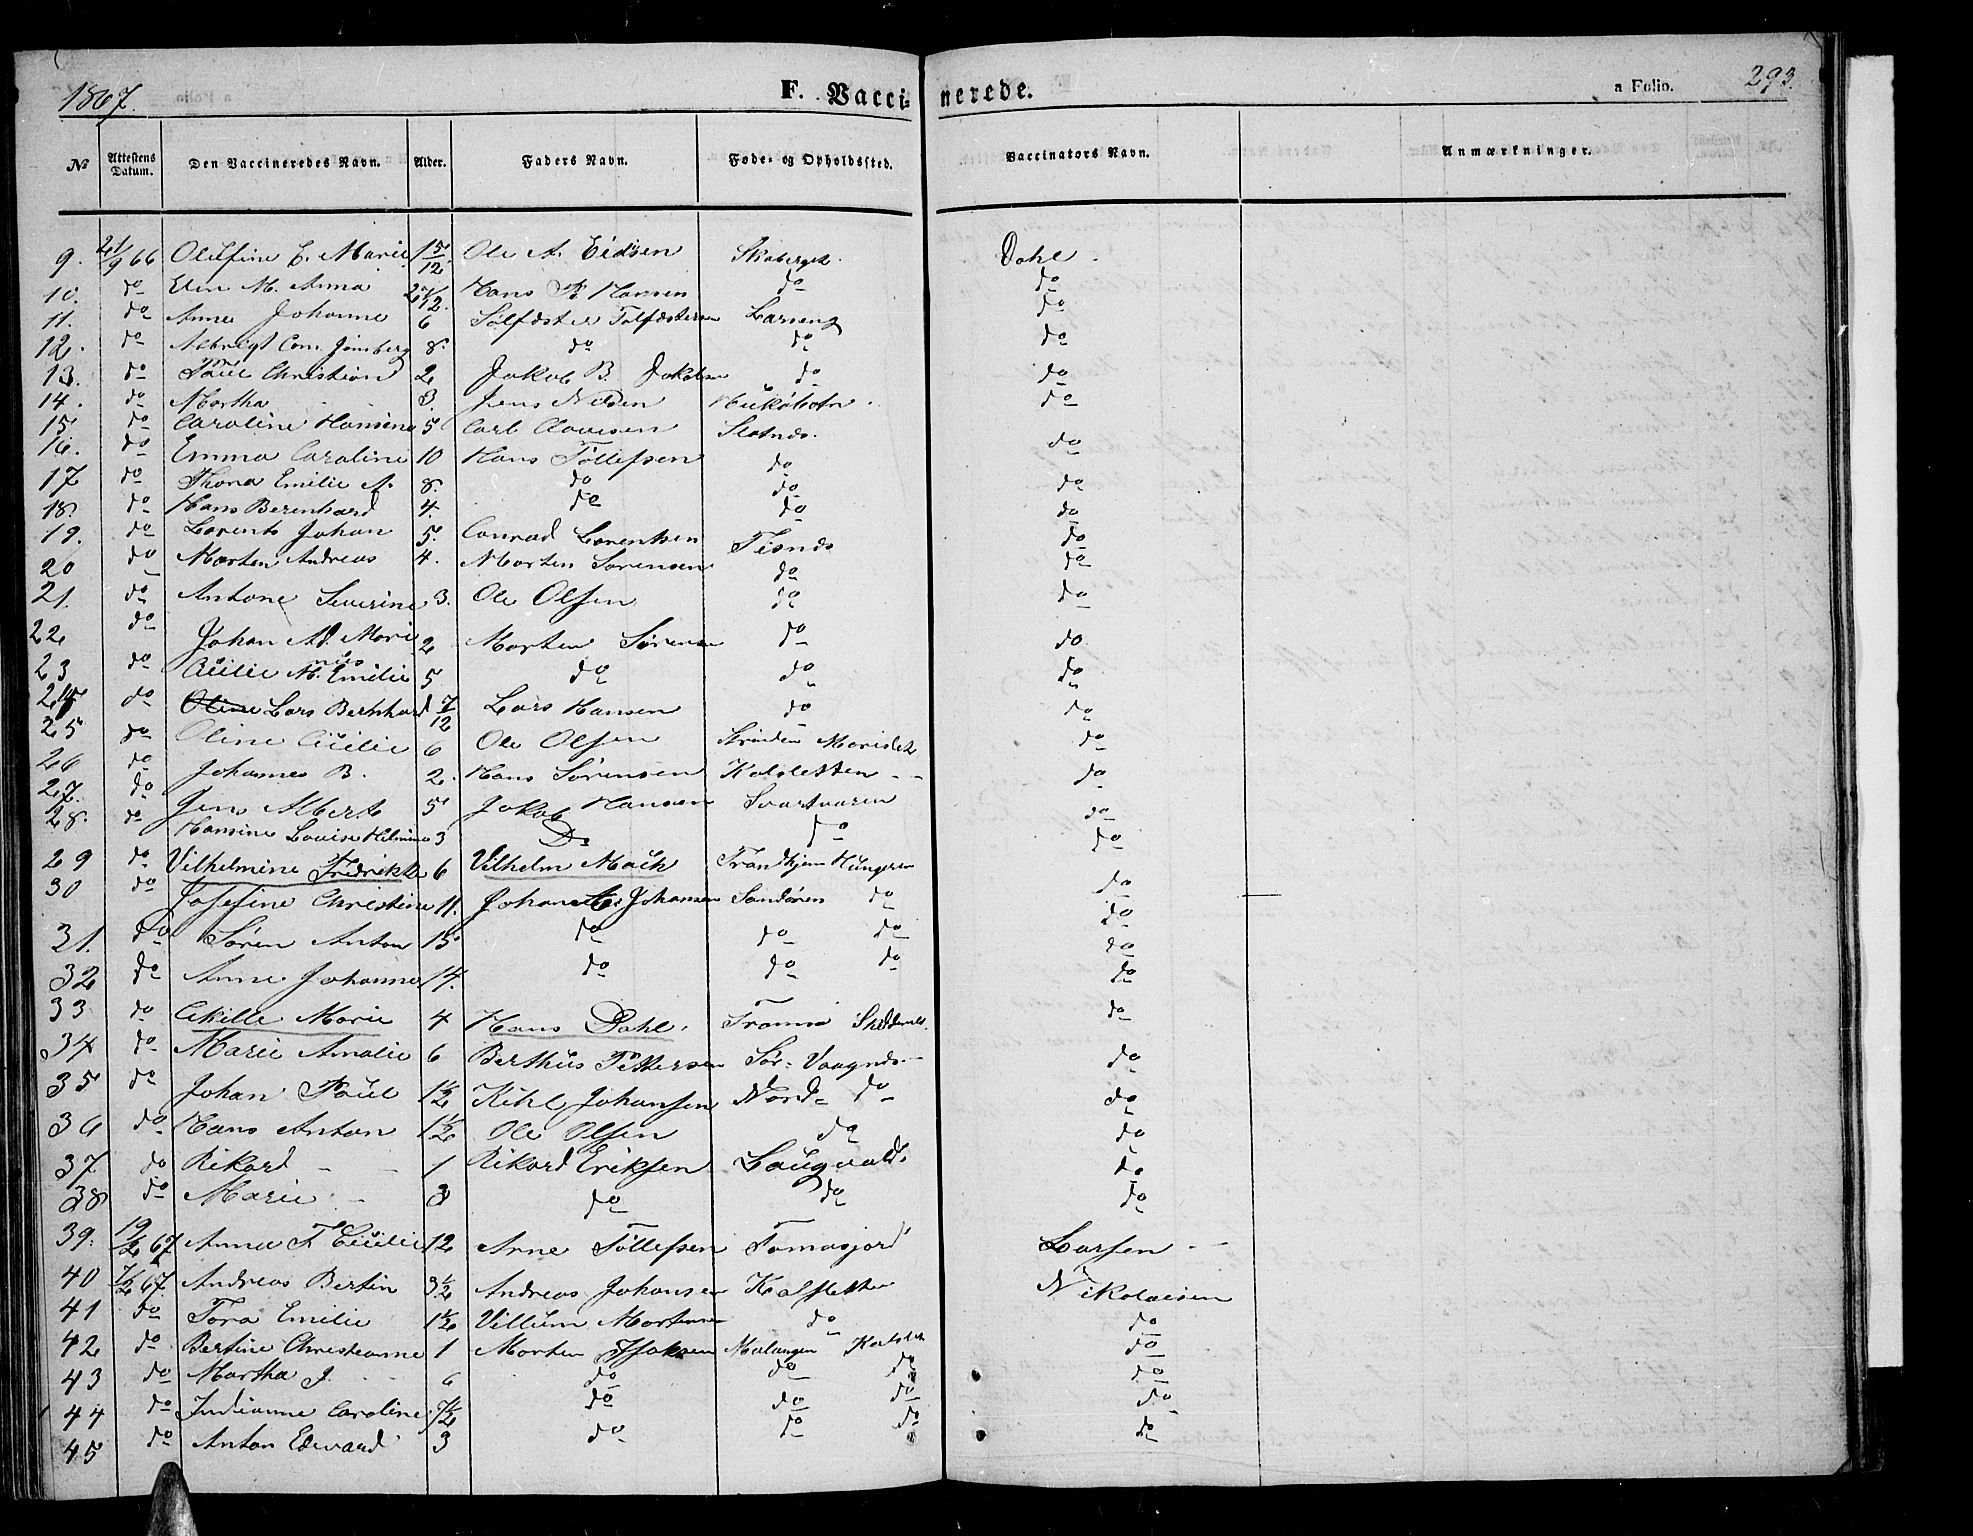 1867. F. Vaccinerede. a Folio. 293.
No Attestens Datum. Den Vaccineredes Navn. Alder. Faders Navn. Føde- og Opholdssted. Vaccinators Navn. Anmærkninger.
9. 21/9 66 Marie 15/12 Ole A. Eidsen Dahl
10. do Elen M. Anna Hans P. Hansen do do
11. do Anne Johanne 6 do
12. do 8. do do do
13. do Paul Christian 2 Jakob B. Jakobsen do do
14. do Martha 3. Jens Nilsen do
15 do Caroline Hansine 5 Carl Clausen
16. do Emma Caroline 10 Hans Tollefsen do do
17 do Thora Emilie A. 8. do do do
18. do Hans Berenhard 4. do do do
19. do Lorents Johan 5. Conrad Lorentsen do
20 do Morten Andreas 4. Morten Sørensen do do
21. do Antone Severine 3. Ole Olsen do do
22 do Johan Ad. Mari 2 Morten Sørensen do do
23 do Cicilie M. Emilie 5 do do do
24 do Lars Bernhard 7/12 Lars Hansen do do
25 do Oline Cicilie 6 Ole Olsen do
26 do Johannes B. 2. Hans Sørensen Kalsletten do
27. do Jens Albert 5 Jakob Hansen Svartnaren do
28. do Hansine Lovise 3 Do do do
29 do Vilhelmine Fredrikke 6 Vilhelm Mack do
30 do Josefine Christine 11. Johan Johansen Sandøren do do
31. do Søren Anton 15 do do do do
32 do Anne Johanne 14. do do do do
33 do Marie 4 Hans Dahl. Tromsø do
34 do Marie Amalie 6 Berthus Pettersen Sør- Vaagnds do
35 do Johan Paul 1 1/2 Kihl Johansen Nord- do do
36 do Hans Anton 1 1/2 Ole Olsen do do
37 do Rikard 1 Rikard Eriksen do
38 do Marie 3 do do do
39. 19/2 67 Anna F. Cicilie 12 Arne Tollefsen Tomasjord Larsen
40 7/2 67 Andreas Bertin 3 1/2 Andreas Johansen Kalsletten Nikolaisen
41 do Tora Emilie 1 1/2 Villum Mortensen do do
42 do Bertine Christianne 1 Morten Malangen do
43 do Martha J. 6 do do do do
44 do Caroline 7 1/2 do do do do
45 do Anton Edevard 3 do do do do